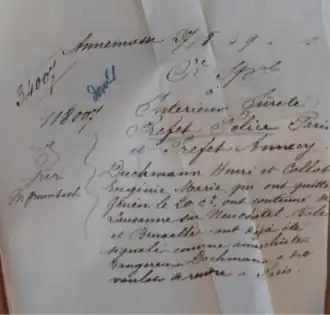 Annemasse 27, 8
34007
Cre Spal
à
118007
Interieur Sûreté
Prefet Police Paris
et Prefet Annecy
Mr Grumbach
Duchmann Henri et Collet
Eugénie Marie qui ont quitté
Genève le 20 ct, ont continué de
Lausanne sur Neuchatel, Bâle
et Bruxelles ont déjà été
signalé comme anarchistes
dangereux Dechmann a dit
vouloir se rendre à Paris.